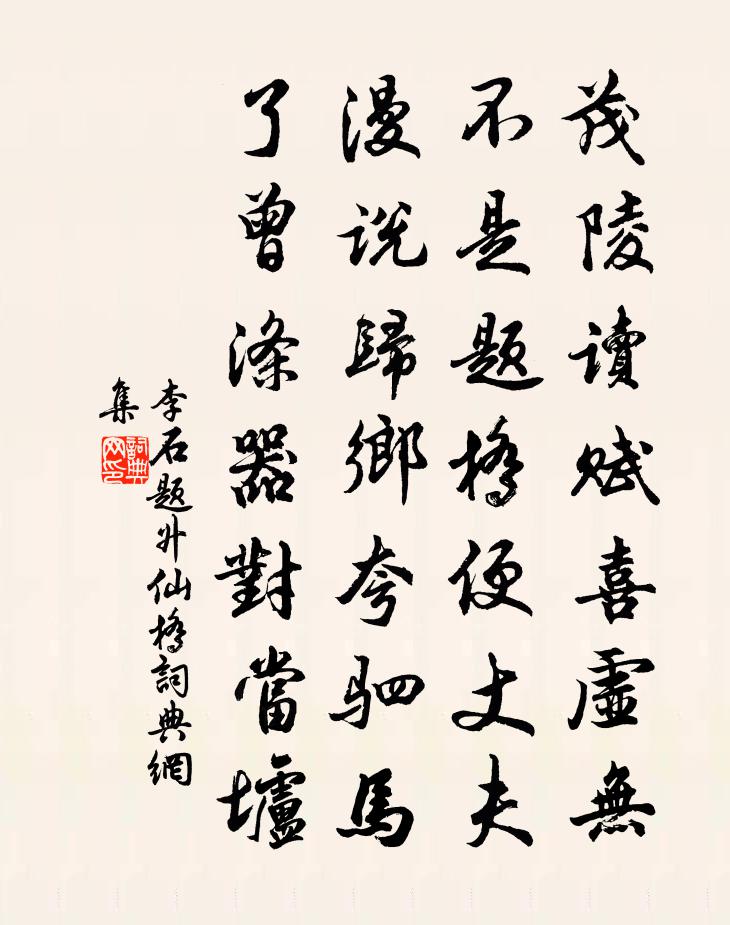 茂陵讀賦喜虛無
不是題橋便丈夫
漫說歸鄉夸駟馬
了曾滌器對當壚
李石题升仙橋詞典網
集
詞典
网印